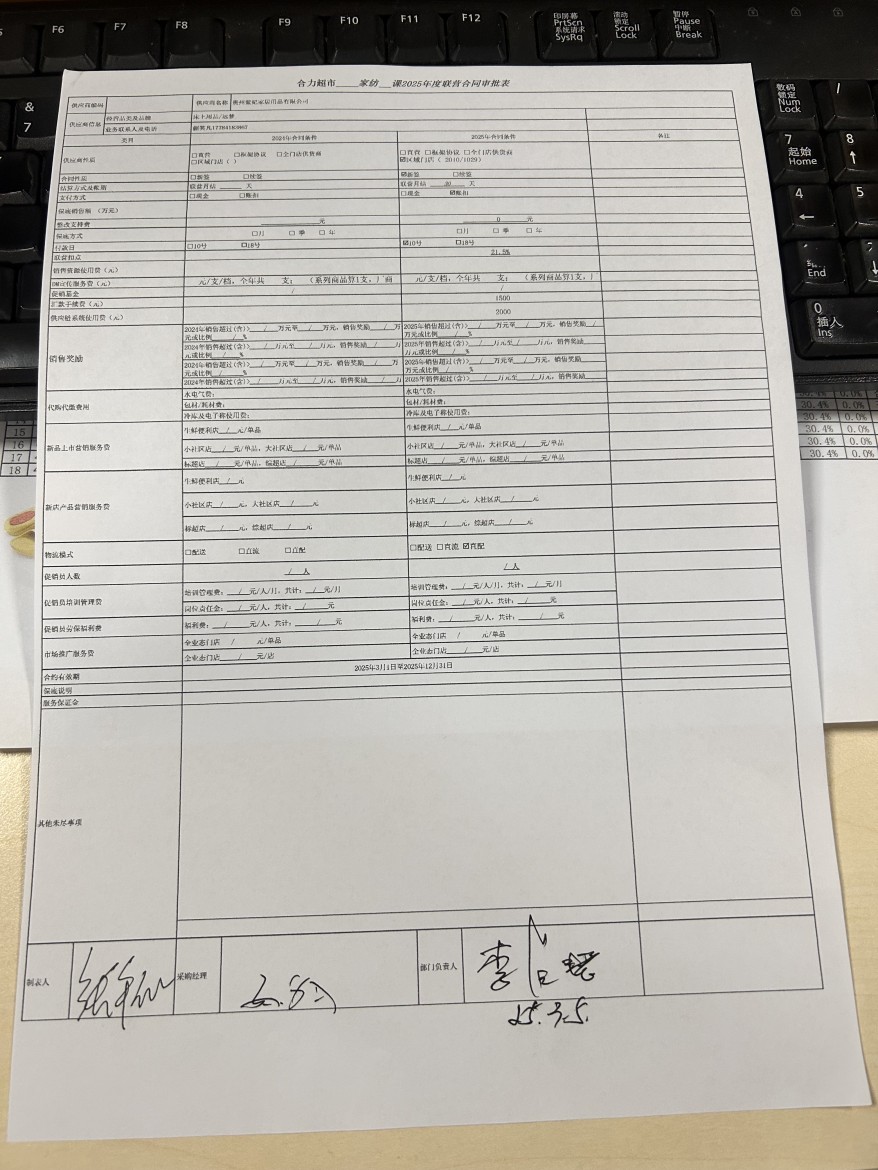 F6 F7 F8 F9 F10 F11 F12
印屏幕 PrtScn 系统请求 SysRq
滚动锁定 Scroll Lock
暂停 Pause 中断 Break
& 7
数码锁定 Num Lock
/
7 起始 Home
8 ↑
4 ←
5
1 End
0 插入 Ins
15
16
17
18
30.4% 0.0%
30.4% 0.0%
30.4% 0.0%
30.4% 0.0%
30.4% 0.0%
合力超市____家纺__课2025年度联营合同审批表
供应商编码 供应商名称
供应商信息 经营品类及品牌 床上用品/远梦
业务联系人及电话
类目 2024年合同条件 2025年合同条件 备注
供应商性质 □直营 □框架协议 □全门店供货商 □直营 □框架协议 □全门店供货商
□区域门店( ) ☑区域门店( 2010/1029)
合同性质 □新签 □续签 ☑新签 □续签
结算方式及帐期 联营月结____天 联营月结__30__天
支付方式 □现金 □账扣 □现金 ☑账扣
保底销售额 (万元)
整改支持费 ____元 0 元
保底方式 □月 □季 □年 □月 □季 □年
付款日 □10号 □18号 ☑10号 □18号
联营扣点 21.5%
销售资源使用费(元)
DM宣传服务费(元) 元/支/档,全年共 支; (系列商品算1支,广商 元/支/档,全年共 支; (系列商品算1支,广
促销基金 / /
汇款手续费(元) 1500
供应链系统使用费(元) 2000
销售奖励 2024年销售超过(含)__/__万元至__/__万元,销售奖励__/__万元或比例__/__% 2025年销售超过(含)__/__万元至__/__万元,销售奖励__/__万元或比例__/__%
2024年销售超过(含)__/__万元至__/__万元,销售奖励__/__万元或比例__/__% 2025年销售超过(含)__/__万元至__/__万元,销售奖励__/__万元或比例__/__%
2024年销售超过(含)__/__万元至__/__万元,销售奖励__/__万元或比例__/__% 2025年销售超过(含)__/__万元至__/__万元,销售奖励__万元或比例__/__%
2024年销售超过(含)__/__万元至__/__万元,销售奖励__/__万 2025年销售超过(含)__/__万元至__/__万元,销售奖励__/__
代购代缴费用 水电气费: 水电气费:
包材/耗材费: 包材/耗材费:
冷库及电子称使用费: 冷库及电子称使用费:
新品上市营销服务费 生鲜便利店__/__元/单品 生鲜便利店__/__元/单品
小社区店__/__元/单品,大社区店__/__元/单品 小社区店__/__元/单品,大社区店__/__元/单品
标超店__/__元/单品,综超店__/__元/单品 标超店__/__元/单品,综超店__/__元/单品
新店产品营销服务费 生鲜便利店__/__元 生鲜便利店__/__元
小社区店__/__元,大社区店__/__元 小社区店__/__元,大社区店__/__元
标超店__/__元,综超店__/__元 标超店__/__元,综超店__/__元
物流模式 □配送 □直流 □直配 □配送 □直流 ☑直配
促销员人数 __/__人 __/__人
促销员培训管理费 培训管理费:__/__元/人/月,共计:__/__元/月 培训管理费:__/__元/人/月,共计:__/__元/月
岗位责任金:__/__元/人,共计:__/__元 岗位责任金:__/__元/人,共计:__/__元
促销员劳保福利费 福利费:__/__元/人,共计:__/__元 福利费:__/__元/人,共计:__/__元
市场推广服务费 全业态门店 / 元/单品 全业态门店 / 元/单品
全业态门店__/__元/店 全业态门店__/__元/店
合约有效期 2025年3月1日至2025年12月31日
保底说明
服务保证金
其他未尽事项
制表人 采购经理 部门负责人 李
25.3.5.